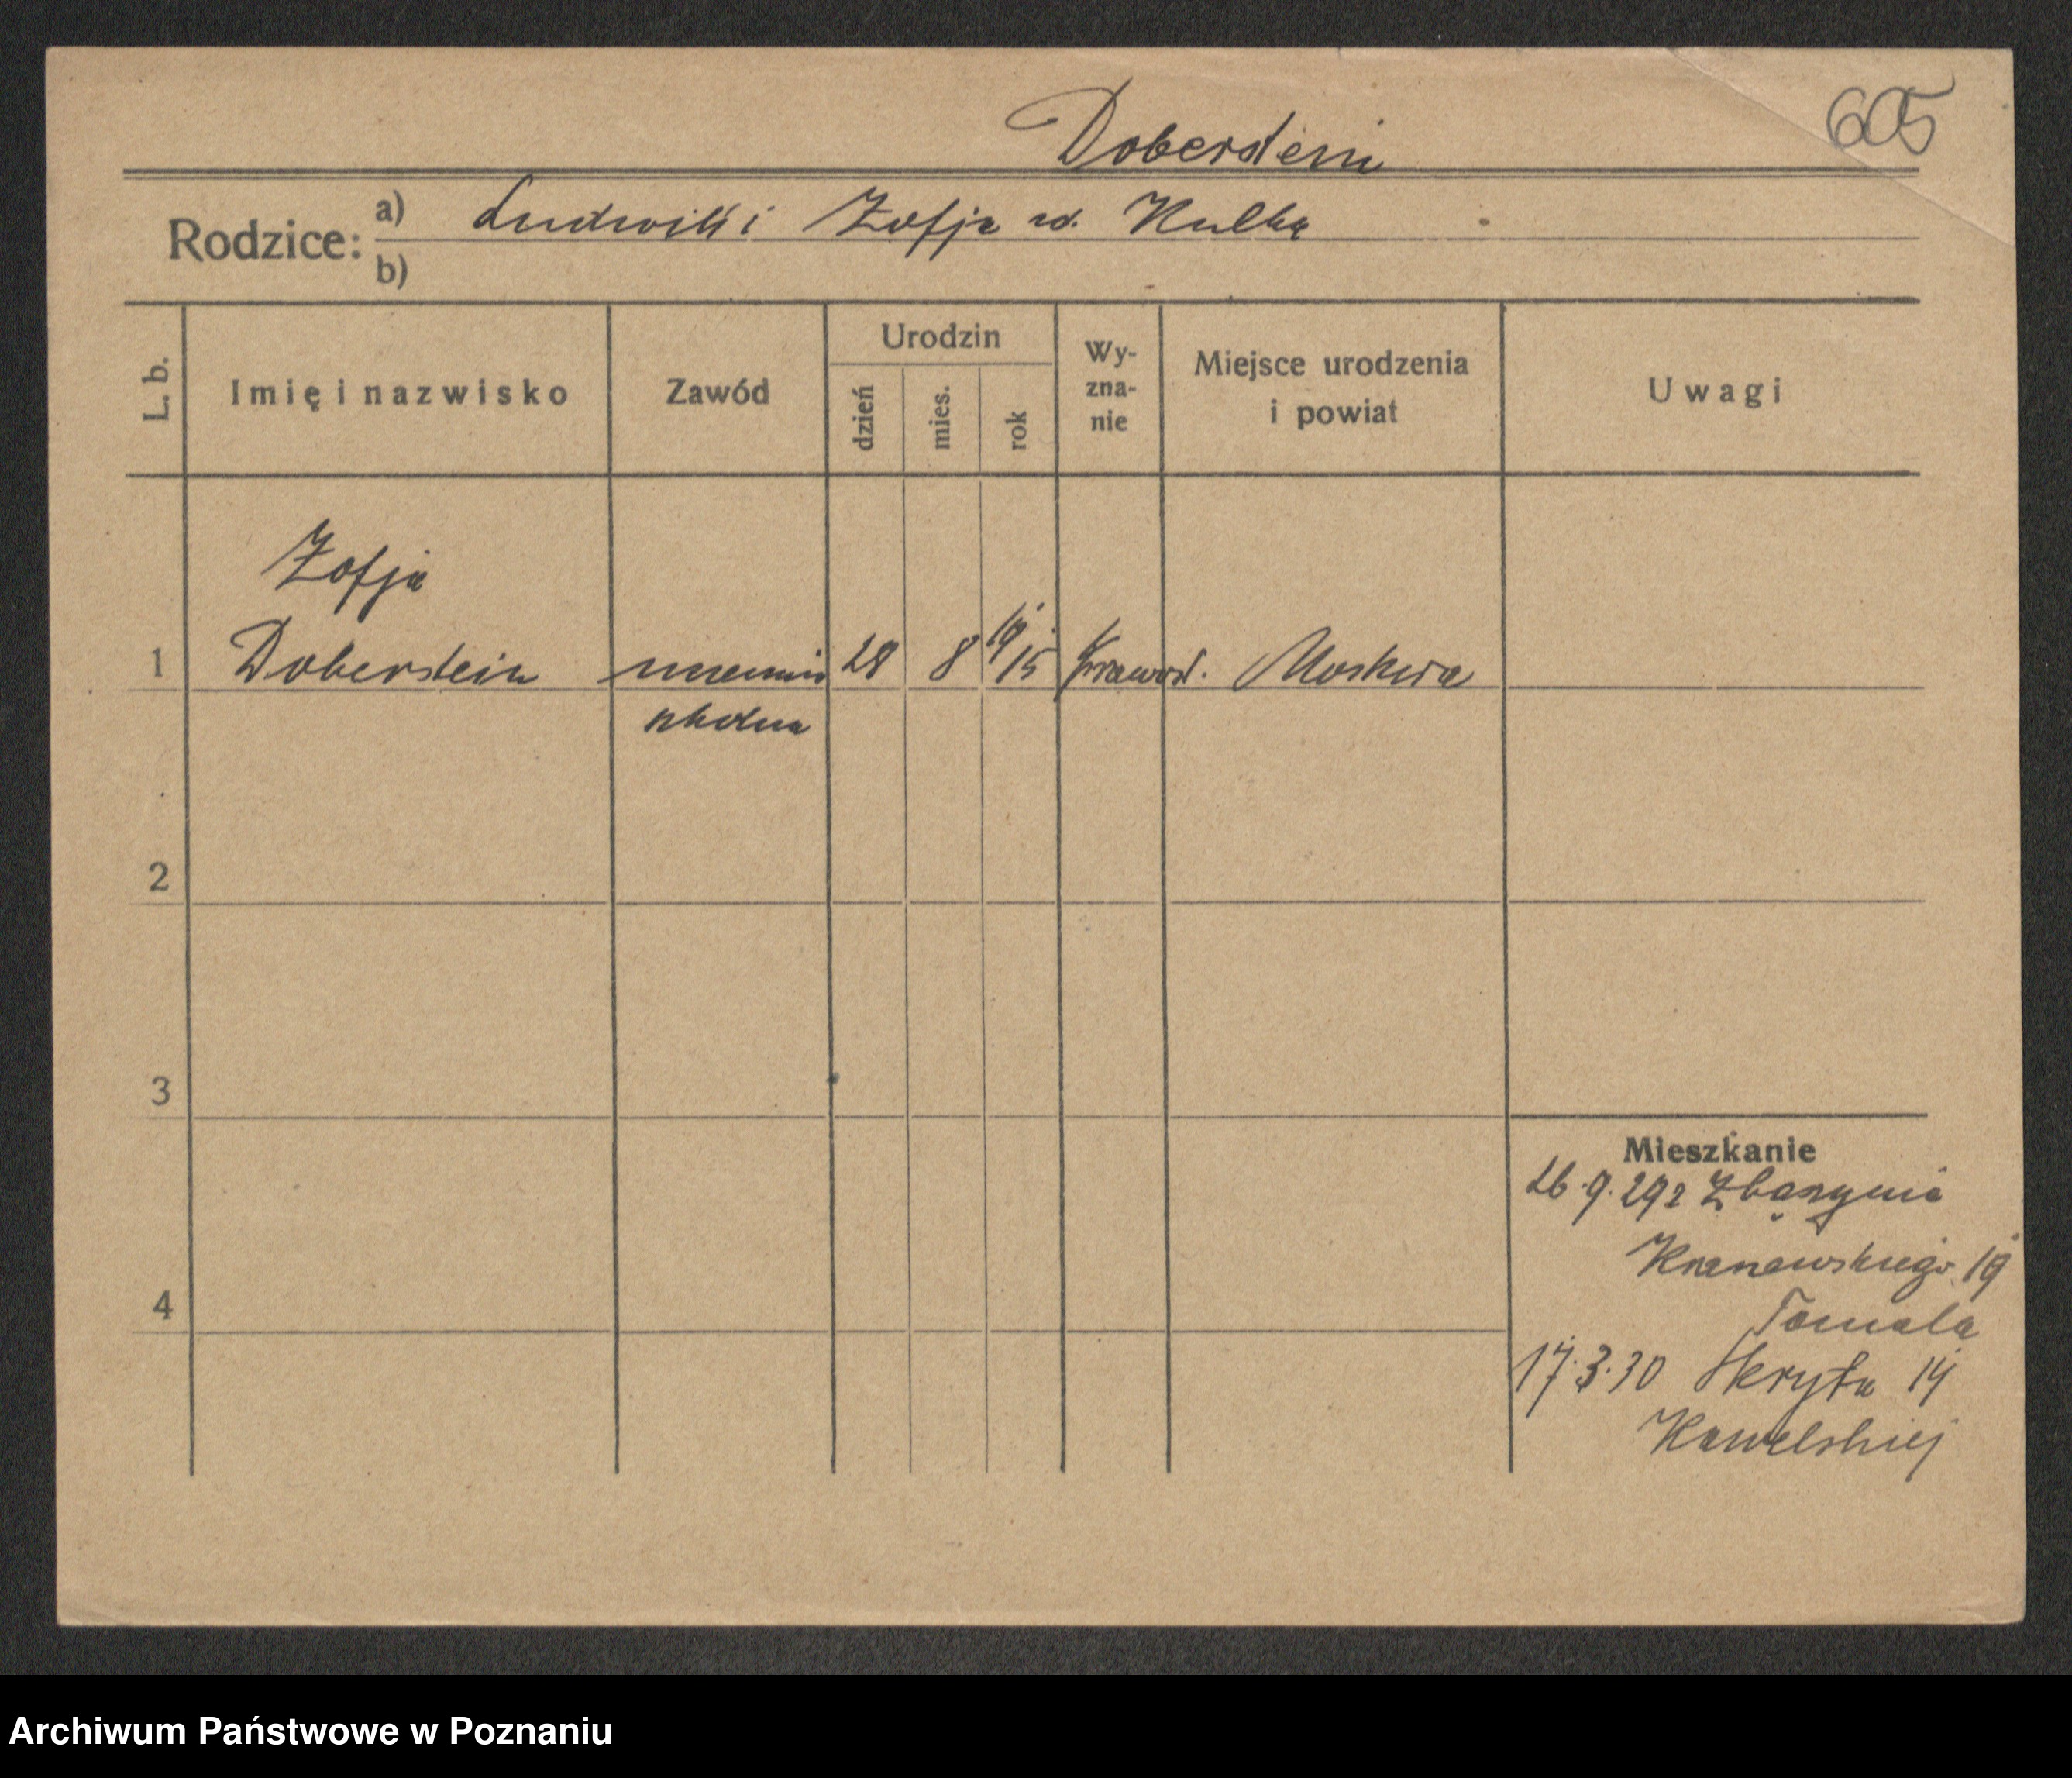 605
Doberstein
Rodzice: a) Ludwik i Zofja ur. Kulka
b)
L. b.
Imię i nazwisko
Zawód
Urodzin
dzień
mies.
rok
Wy-
zna-
nie
Miejsce urodzenia
i powiat
Uwagi
Zofja
1 Doberstein uczennica 28 8 19/15 prawosł. Moskwa
szkolna
2
3
Mieszkanie
26.9.29 z Zbąszynia
19
Tomala
4
17.3.30 Skryta 14
Kawelskiej
Archiwum Państwowe w Poznaniu